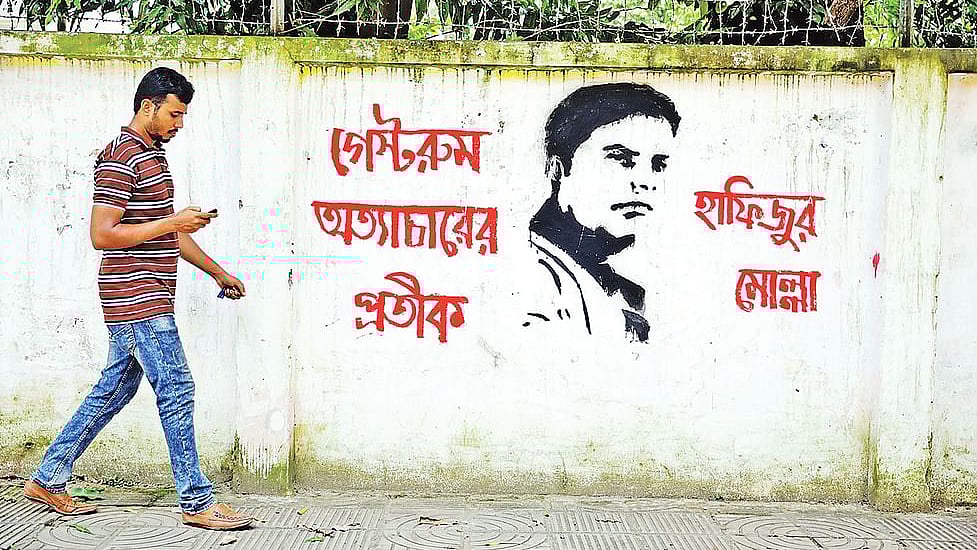 গেস্টরুম
অত্যাচারের
প্রতীক
হাফিজুর
মোল্লা